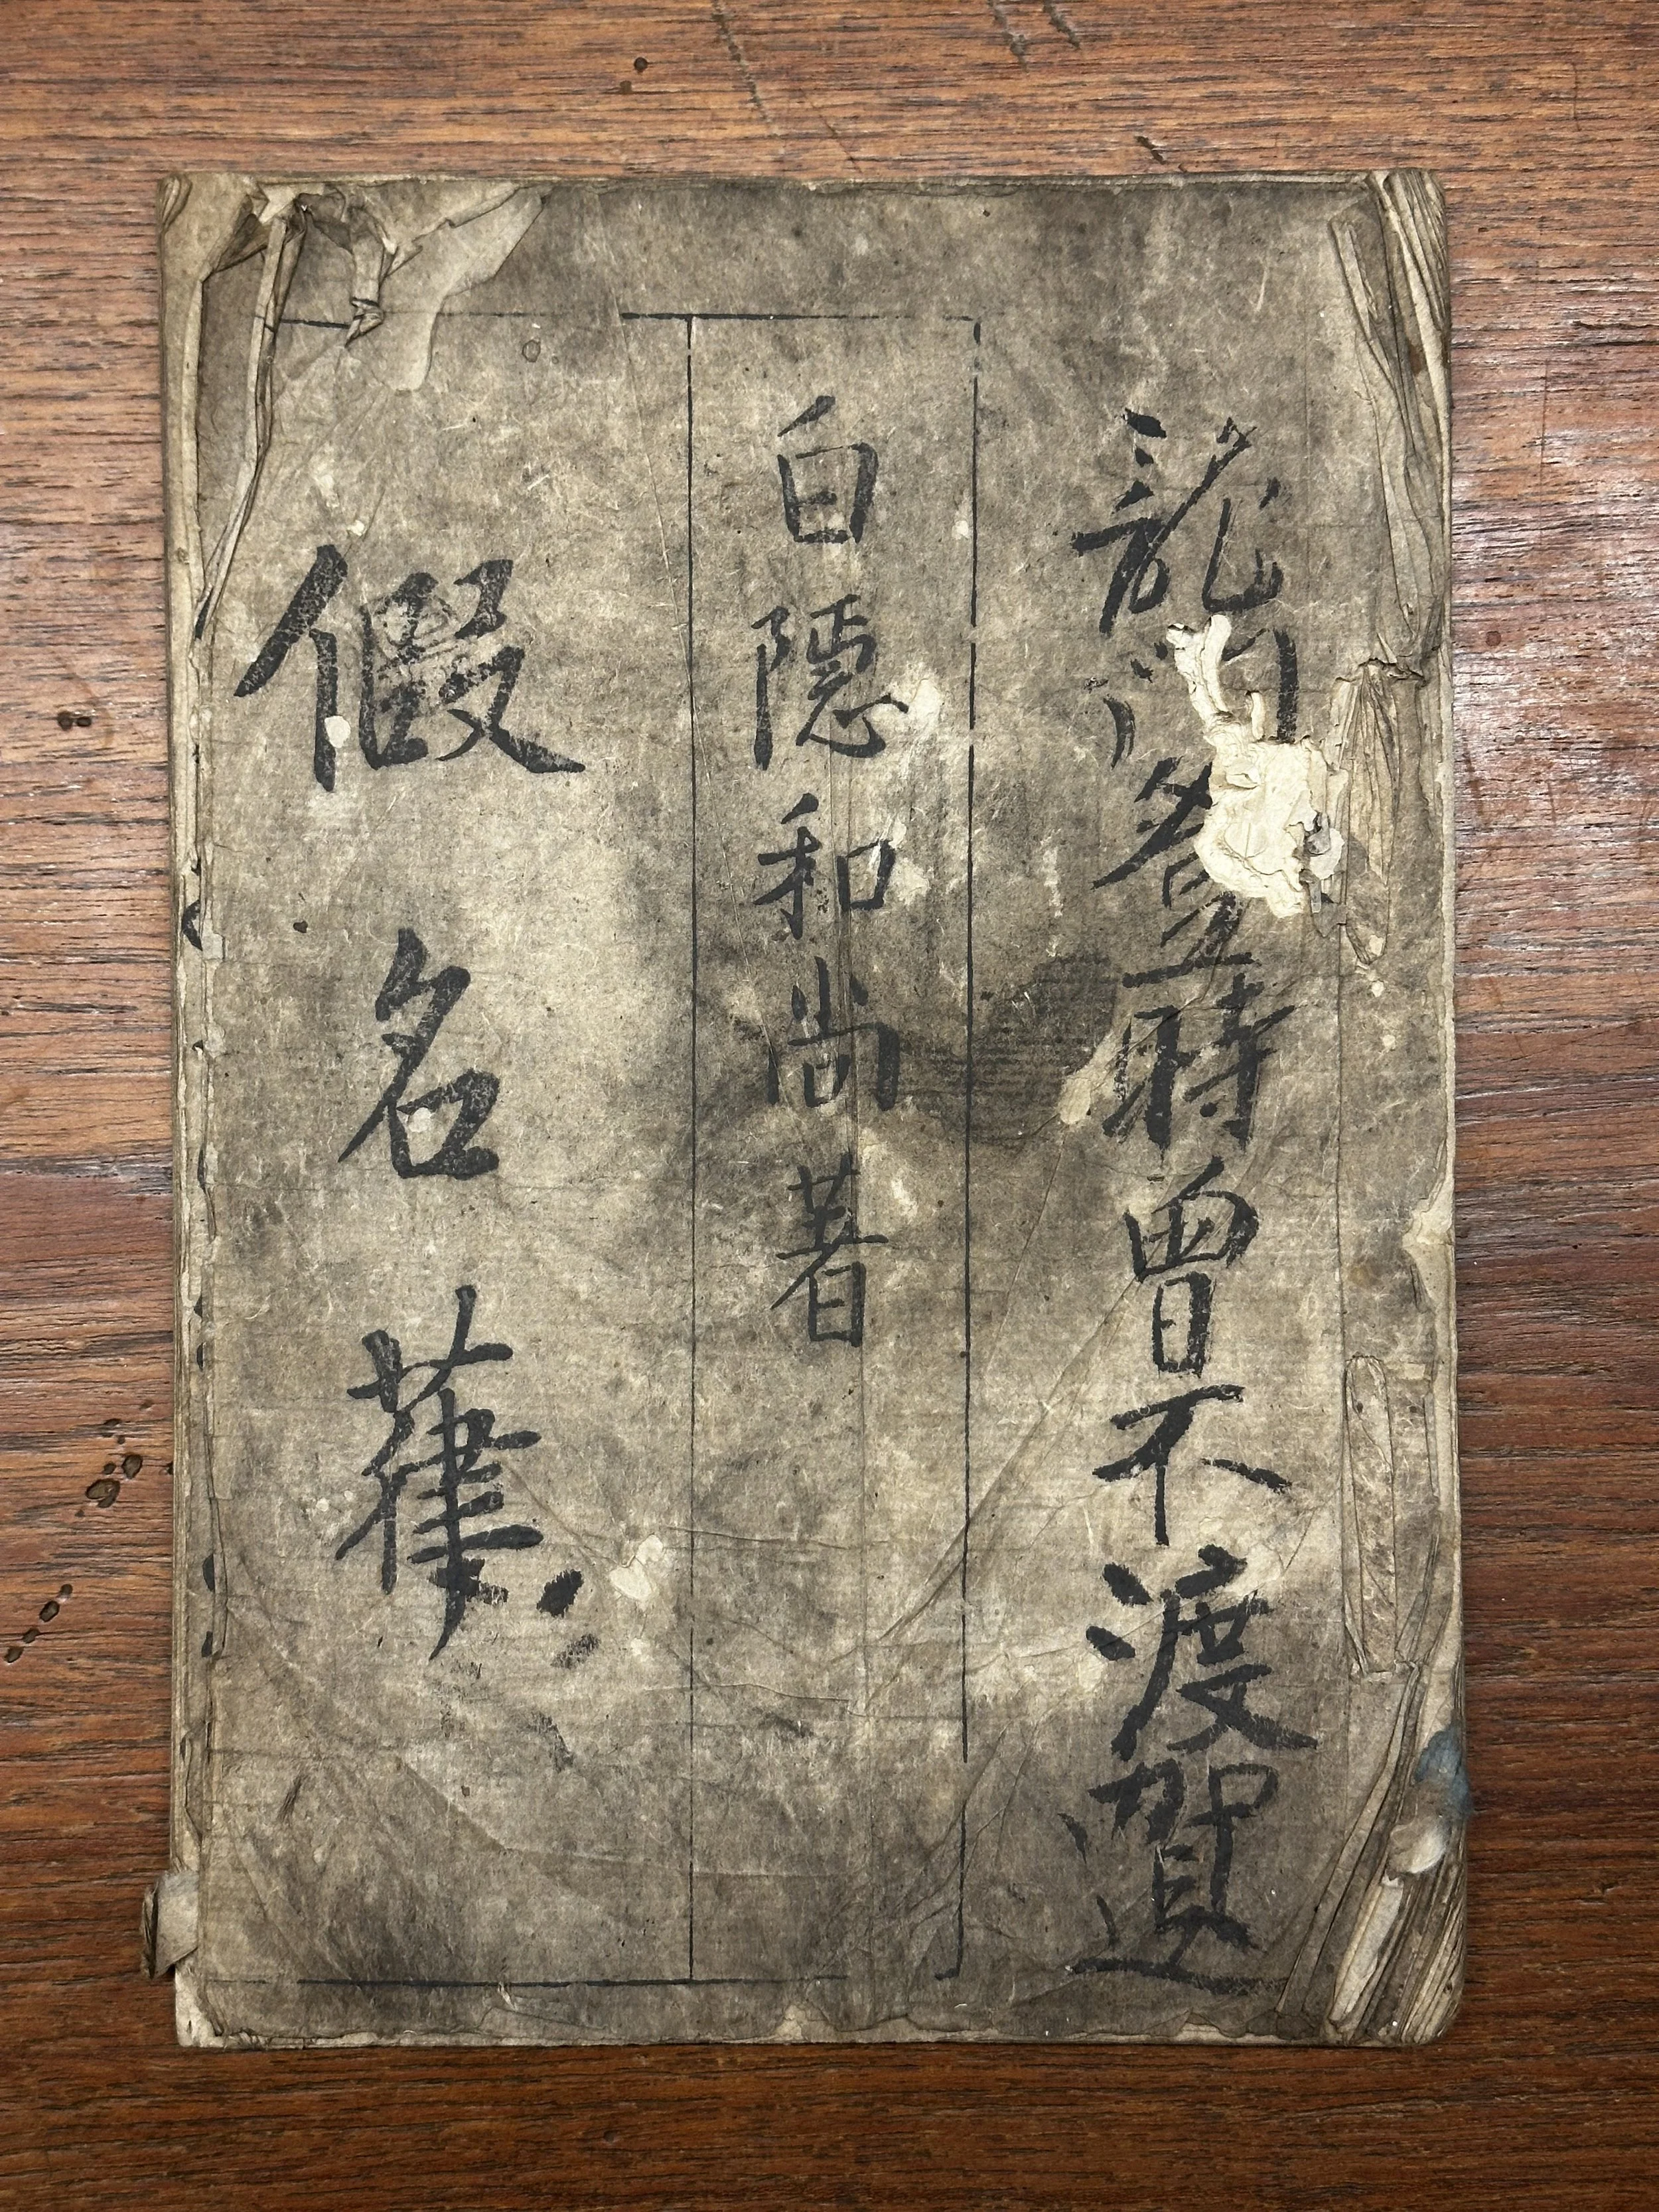 龍門登時曾不渡
白隱和尚著
假名葎